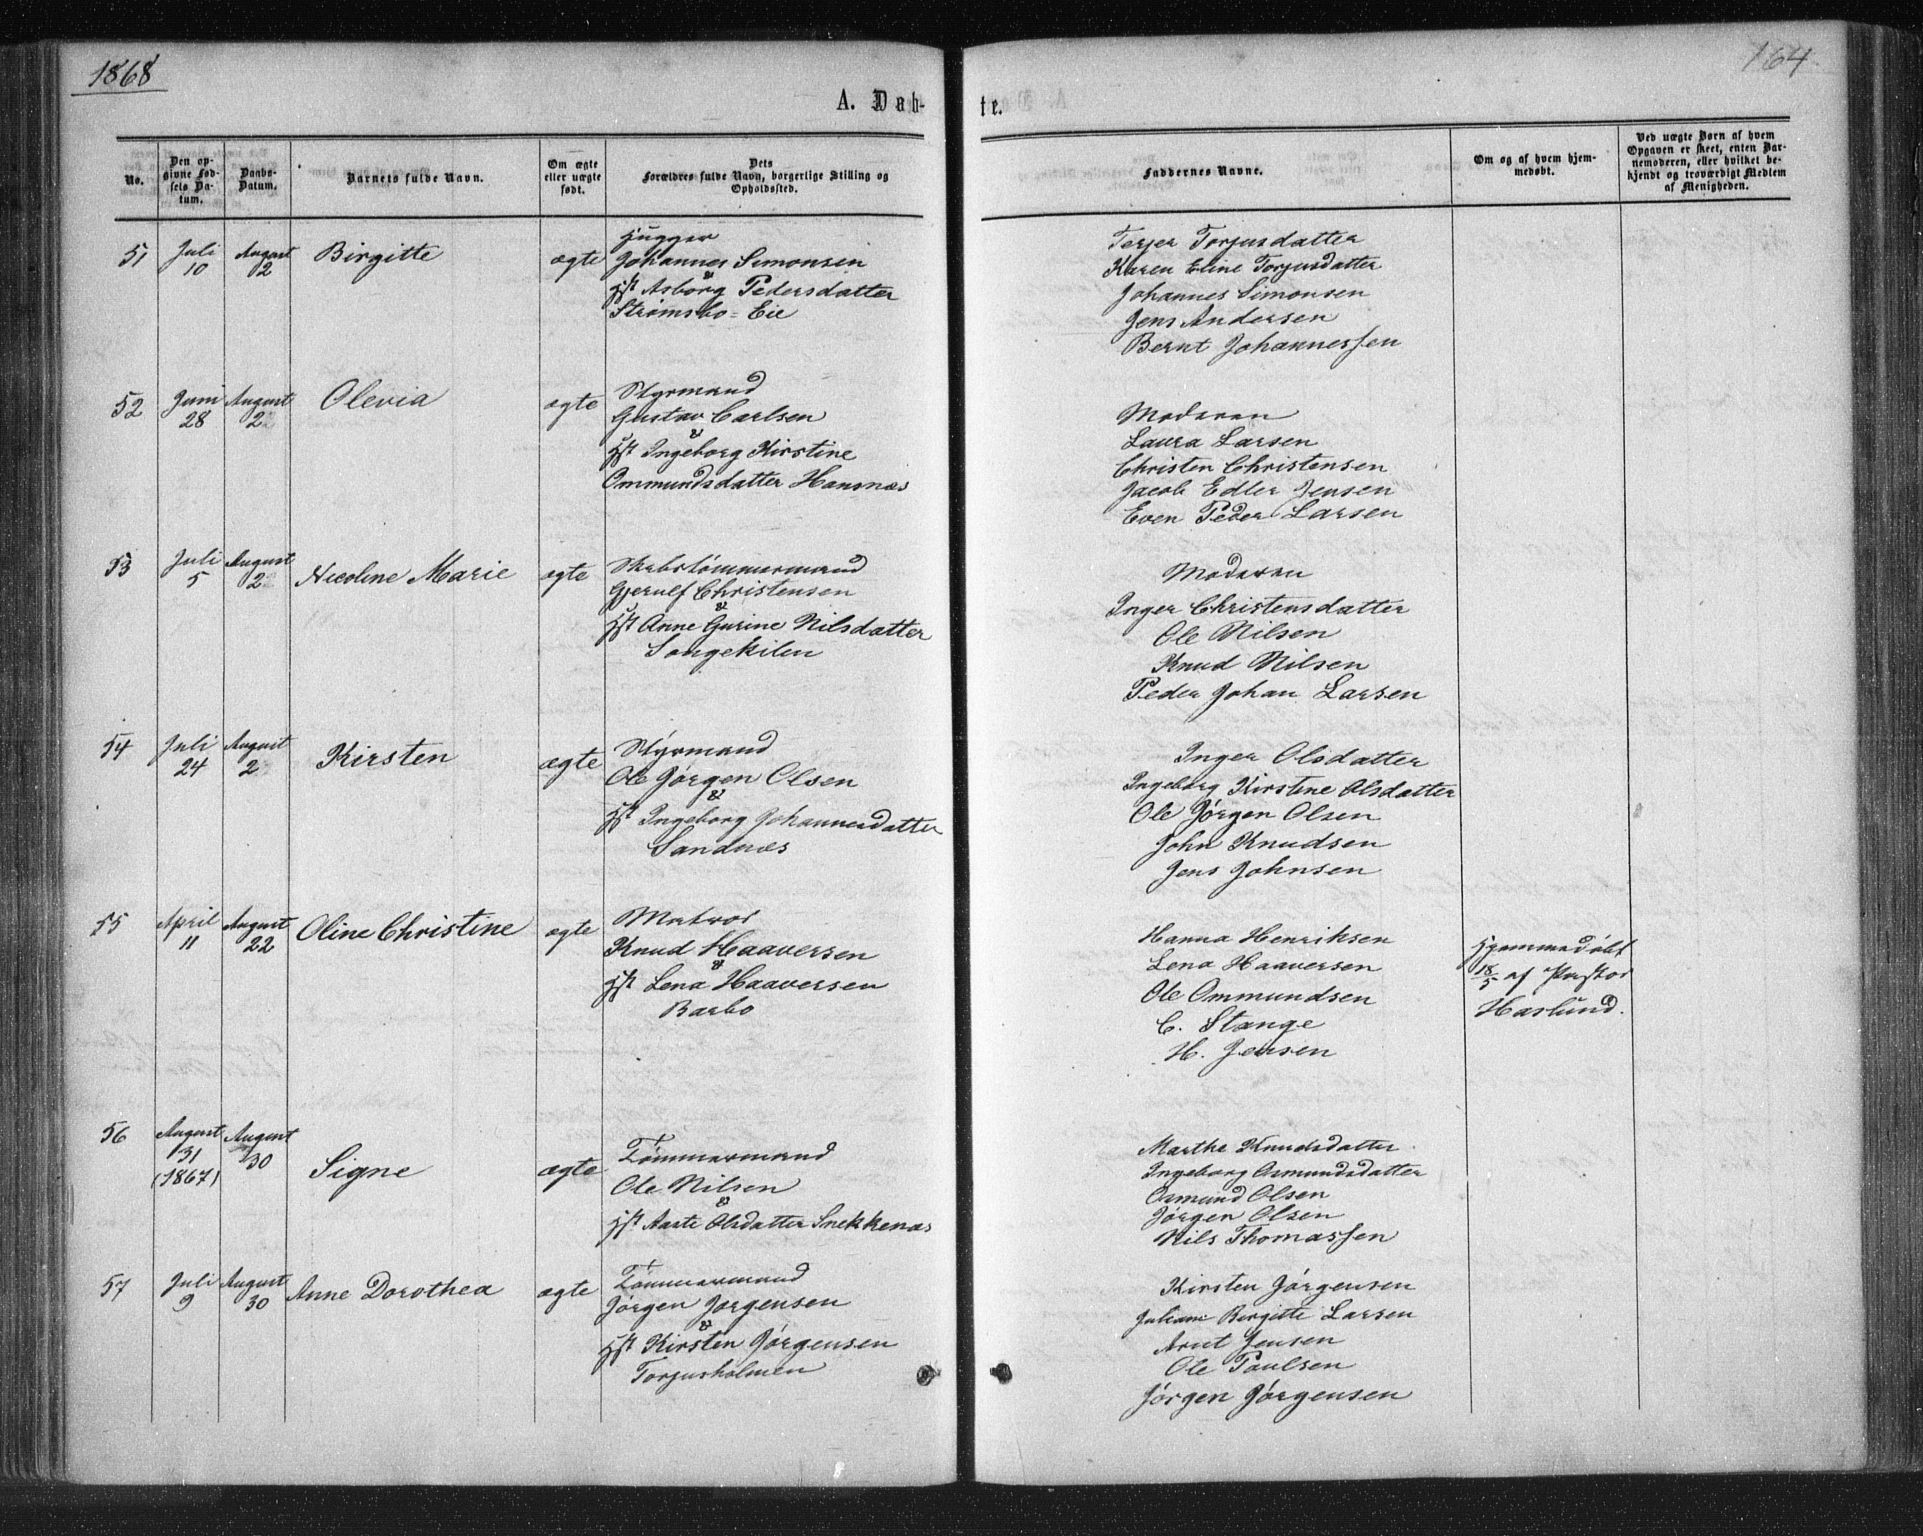 1868
164
A. Døb-
te.
No.
Den op-
givne Fød-
sels Da-
tum.
Daabs-
Datum.
Barnets fulde Navn.
Om ægte
eller uægte
født.
Dets
Forældres fulde Navn, borgerlige Stilling og
Opholdssted.
Faddernes Navne.
Om og af hvem hjem-
medøbt.
Ved uægte Børn af hvem
Opgaven er skeet, enten Bar-
nemoderen, eller hvilket be-
kjendt og troværdigt Medlem
af Menigheden.
51
Juli
10
August
2
Birgitte
ægte
Hugger
Johannes Simonsen
&
Hst Asborg Pedersdatter
Strømsbo = Eie
Terjer Torjusdatter
Karen Eline Torjusdatter
Johannes Simonsen
Jens Andersen
Bernt Johannessen
52
Juni
28
August
2
Olevia
ægte
Styrmand
Gustav Carlsen
&
Hst Ingeborg Kirstine
Ommundsdatter Hansnæs
Moderen
Laura Larsen
Christen Christensen
Jacob Edler Jensen
Even Peder Larsen
53
Juli
5
August
2
Nicoline Marie
ægte
Skibstømmermand
Gjerulf Christensen
&
Hst Anne Gurine Nilsdatter
Songekilen
Moderen
Inger Christensdatter
Ole Nilsen
Knud Nilsen
Peder Johan Larsen
54
Juli
24
August
2
Kirsten
ægte
Styrmand
Ole Jørgen Olsen
&
Hst Ingeborg Johannesdatter
Sandnæs
Inger Olsdatter
Ingeborg Kirstine Olsdatter
Ole Jørgen Olsen
John Knudsen
Jens Johnsen
55
April
11
August
22
Oline Christine
ægte
Matros
Knud Haaversen
&
Hst Lena Haaversen
Barbo
Hanna Henriksen
Lena Haaversen
Ole Ommundsen
C. Stange
H. Jensen
Hjemmedøbt
18/5 af Pastor
Haslund.
56
August
31
(1867)
August
30
Signe
ægte
Tømmermand
Ole Nilsen
&
Hst Aaste Olsdatter Snekkenæs
Marthe Knudsdatter
Ingeborg Osmundsdatter
Osmund Olsen
Jørgen Olsen
Nils Thomassen
57
Juli
9
August
30
Anne Dorothea
ægte
Tømmermand
Jørgen Jørgensen
&
Hst Kirsten Jørgensen
Torjusholmen
Kirsten Jørgensen
Juliane Birgitte Larsen
Arnt Jensen
Ole Paulsen
Jørgen Jørgensen